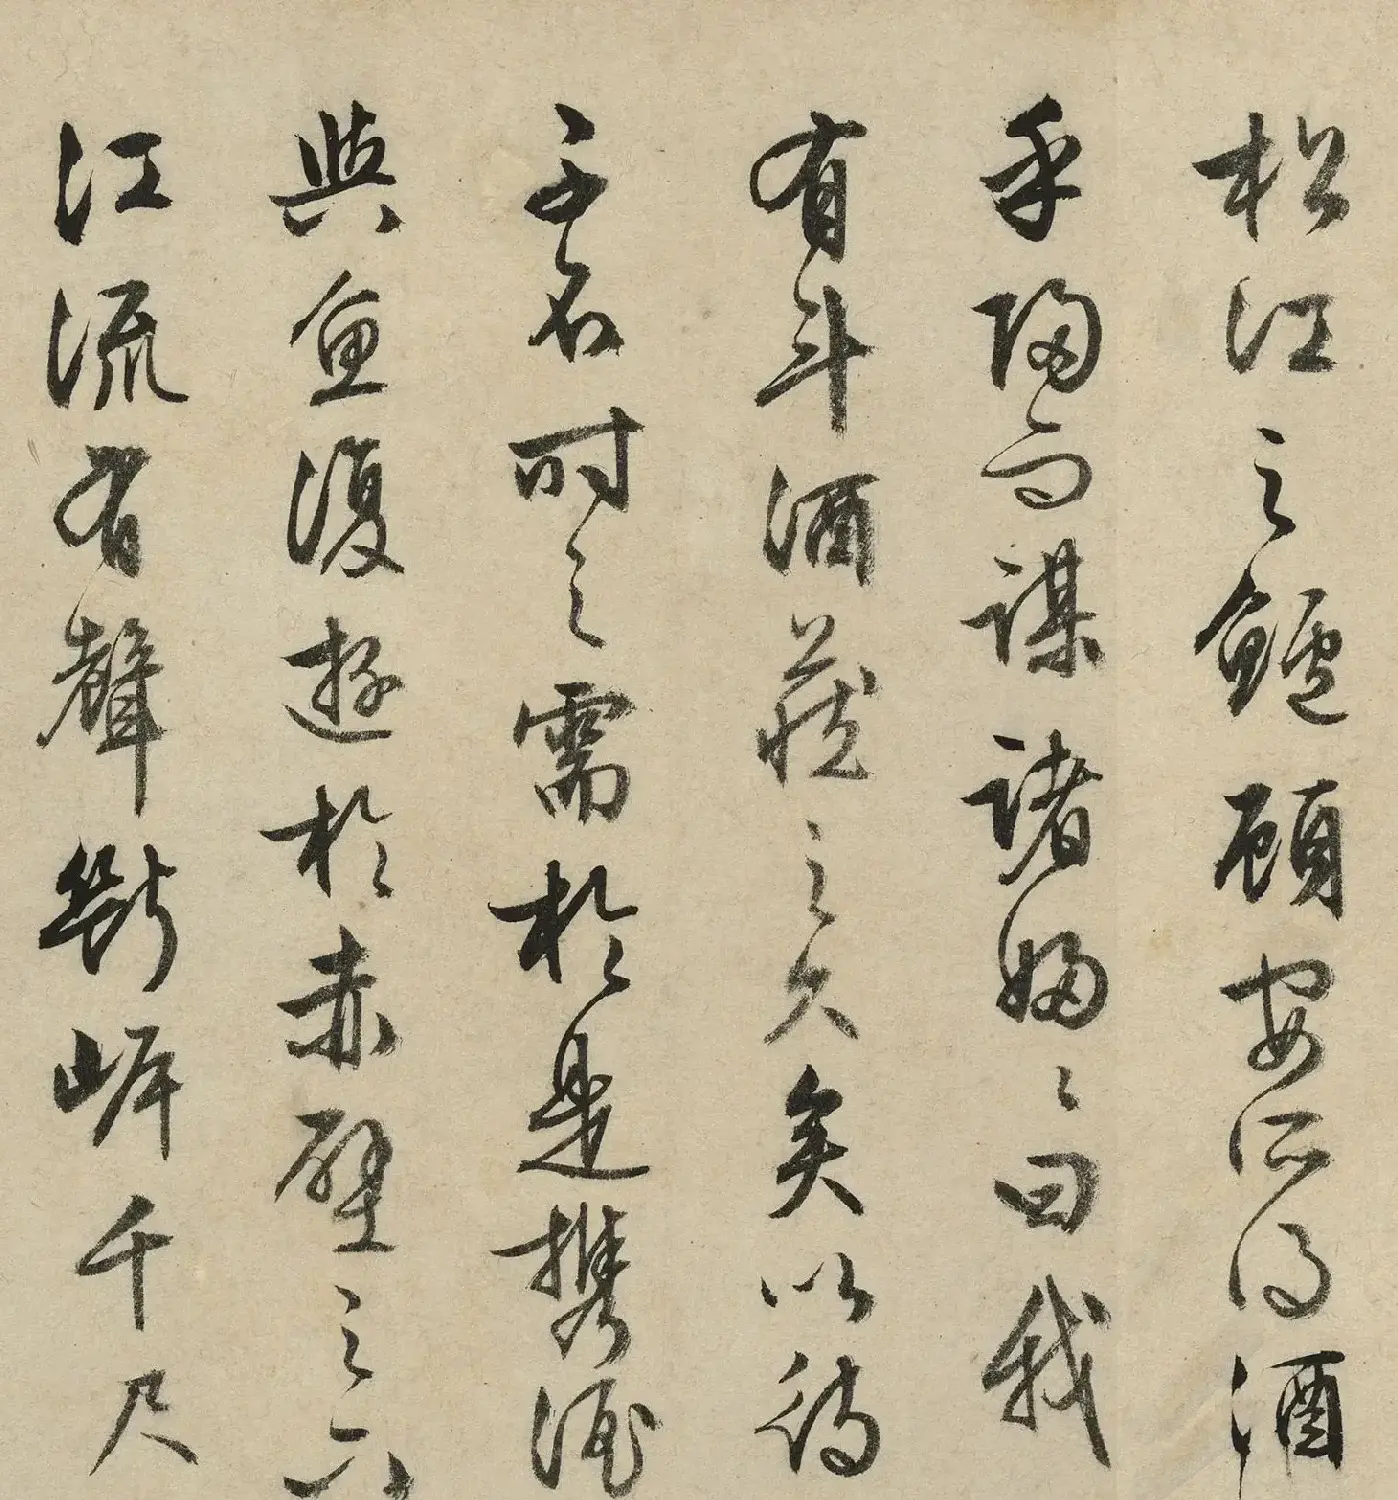 松江之鱸顧安所得酒
乎歸而謀諸婦〻曰我
有斗酒藏之久矣以待
子不時之需於是攜酒
與魚復遊於赤壁之下
江流有聲斷岸千尺